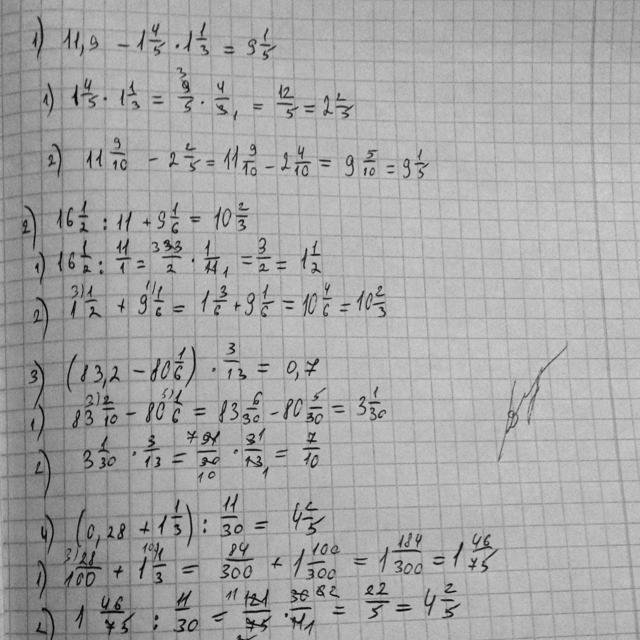 1) 11,9 - 1 4/5 · 1 1/3 = 9 1/5
1) 1 4/5 · 1 1/3 = 9/5 · 4/3 = 12/5 = 2 2/5
2) 11 9/10 - 2 2/5 = 11 9/10 - 2 4/10 = 9 5/10 = 9 1/5
2) 16 1/2 : 11 + 9 1/6 = 10 2/3
1) 16 1/2 : 11/1 = 33/2 · 1/11 = 3/2 = 1 1/2
2) 1 1/2 + 9 1/6 = 1 3/6 + 9 1/6 = 10 4/6 = 10 2/3
3) (83,2 - 80 1/6) · 3/13 = 0,7
1) 83 2/10 - 80 1/6 = 83 6/30 - 80 5/30 = 3 1/30
2) 3 1/30 · 3/13 = 91/30 · 3/13 = 7/10
4) (0,28 + 1 1/3) : 11/30 = 4 2/5
1) 28/100 + 1 1/3 = 84/300 + 1 100/300 = 1 184/300 = 1 46/75
2) 1 46/75 : 11/30 = 121/75 · 30/11 = 22/5 = 4 2/5